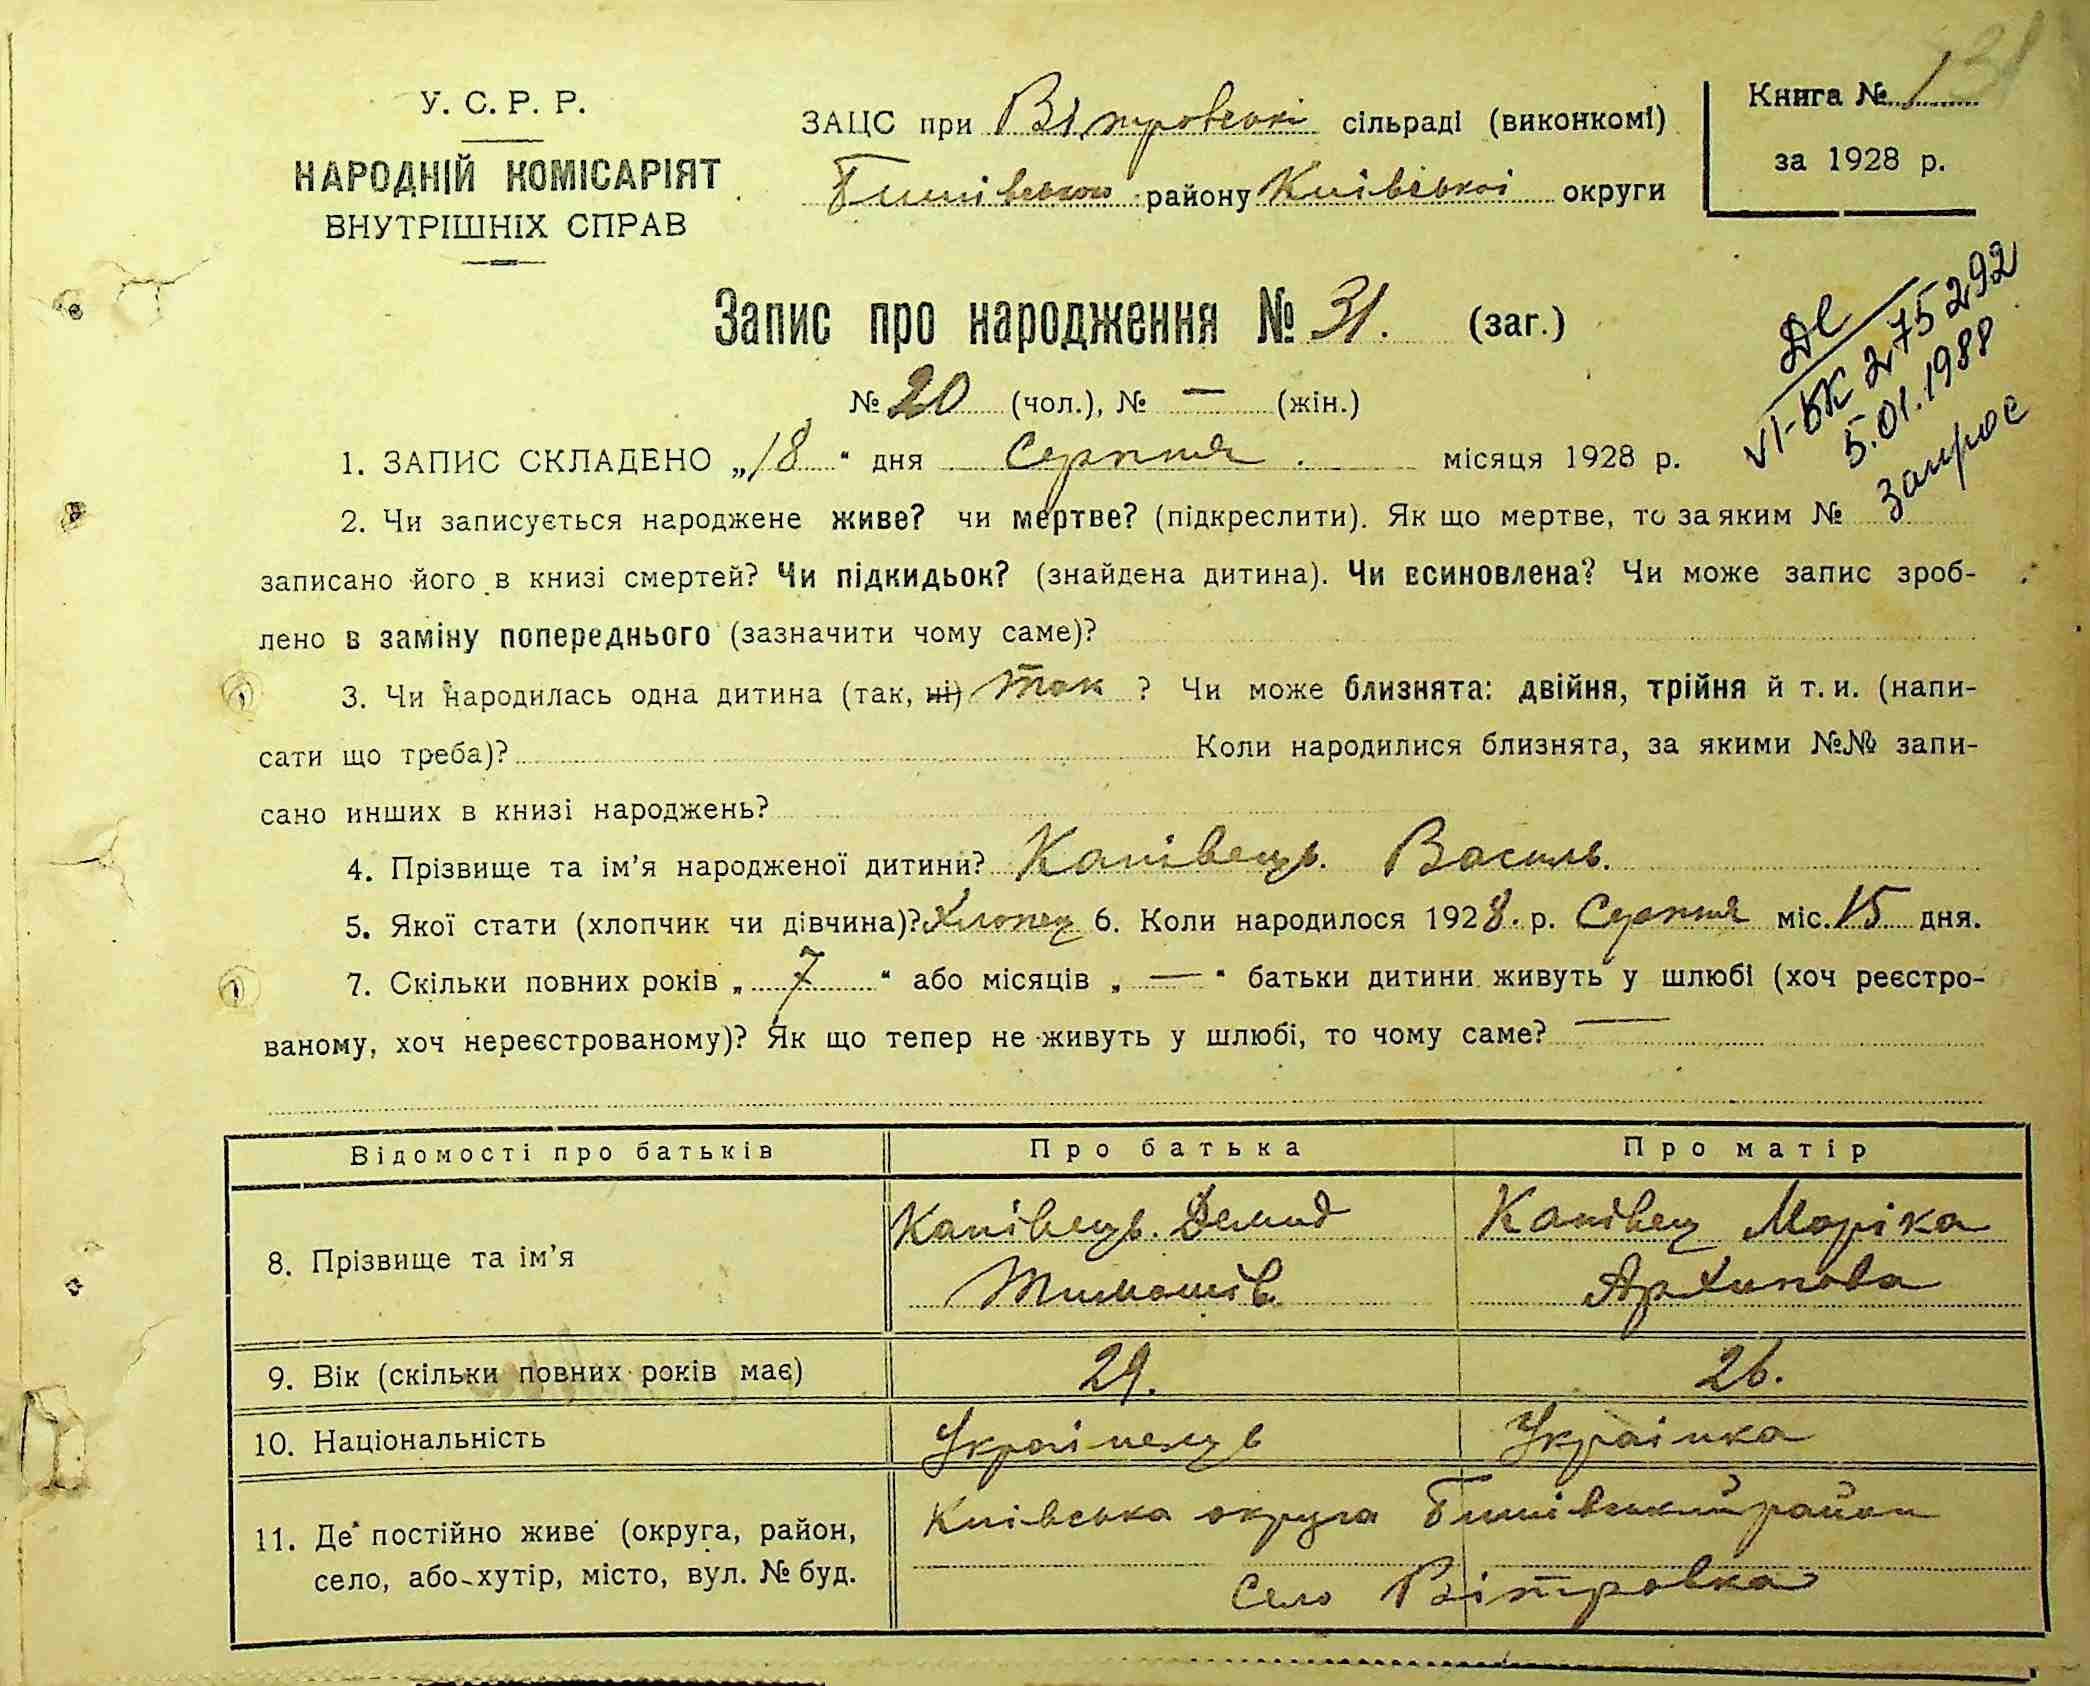 31
У. С. Р. Р.
НАРОДНІЙ КОМІСАРІЯТ
ВНУТРІШНІХ СПРАВ
ЗАЦС при Вітровські сільраді (виконкомі)
Бишівського району Київської округи
Книга № 1
за 1928 р.
Запис про народження № 31. (заг.)
№ 20 (чол.), № — (жін.)
VI-БК 275292
5.01.1988
Запрос
1. ЗАПИС СКЛАДЕНО „18“ дня Серпня місяця 1928 р.
2. Чи записується народжене живе? чи мертве? (підкреслити). Як що мертве, то за яким №
записано його в книзі смертей? Чи підкидьок? (знайдена дитина). Чи всиновлена? Чи може запис зроб-
лено в заміну попереднього (зазначити чому саме)?
3. Чи народилась одна дитина (так, ні) так ? Чи може близнята: двійня, трійня й т. и. (напи-
сати що треба)? Коли народилися близнята, за якими №№ запи-
сано инших в книзі народжень?
4. Прізвище та ім’я народженої дитини? Капівець. Василь.
5. Якої стати (хлопчик чи дівчина)? Хлопец 6. Коли народилося 1928. р. Серпня міс. 15 дня.
7. Скільки повних років „ 7 “ або місяців „ — “ батьки дитини живуть у шлюбі (хоч реєстро-
ваному, хоч нереєстрованому)? Як що тепер не живуть у шлюбі, то чому саме? —
Відомості про батьків Про батька Про матір
8. Прізвище та ім’я Капівець. Демид Капівец Маріка
Тимошів. Архипова
9. Вік (скільки повних років має) 29. 26.
10. Національність Украінець Украінка
11. Де постійно живе (округа, район, Київська округа Бишівський район
село, або хутір, місто, вул. № буд. Село Вітровка